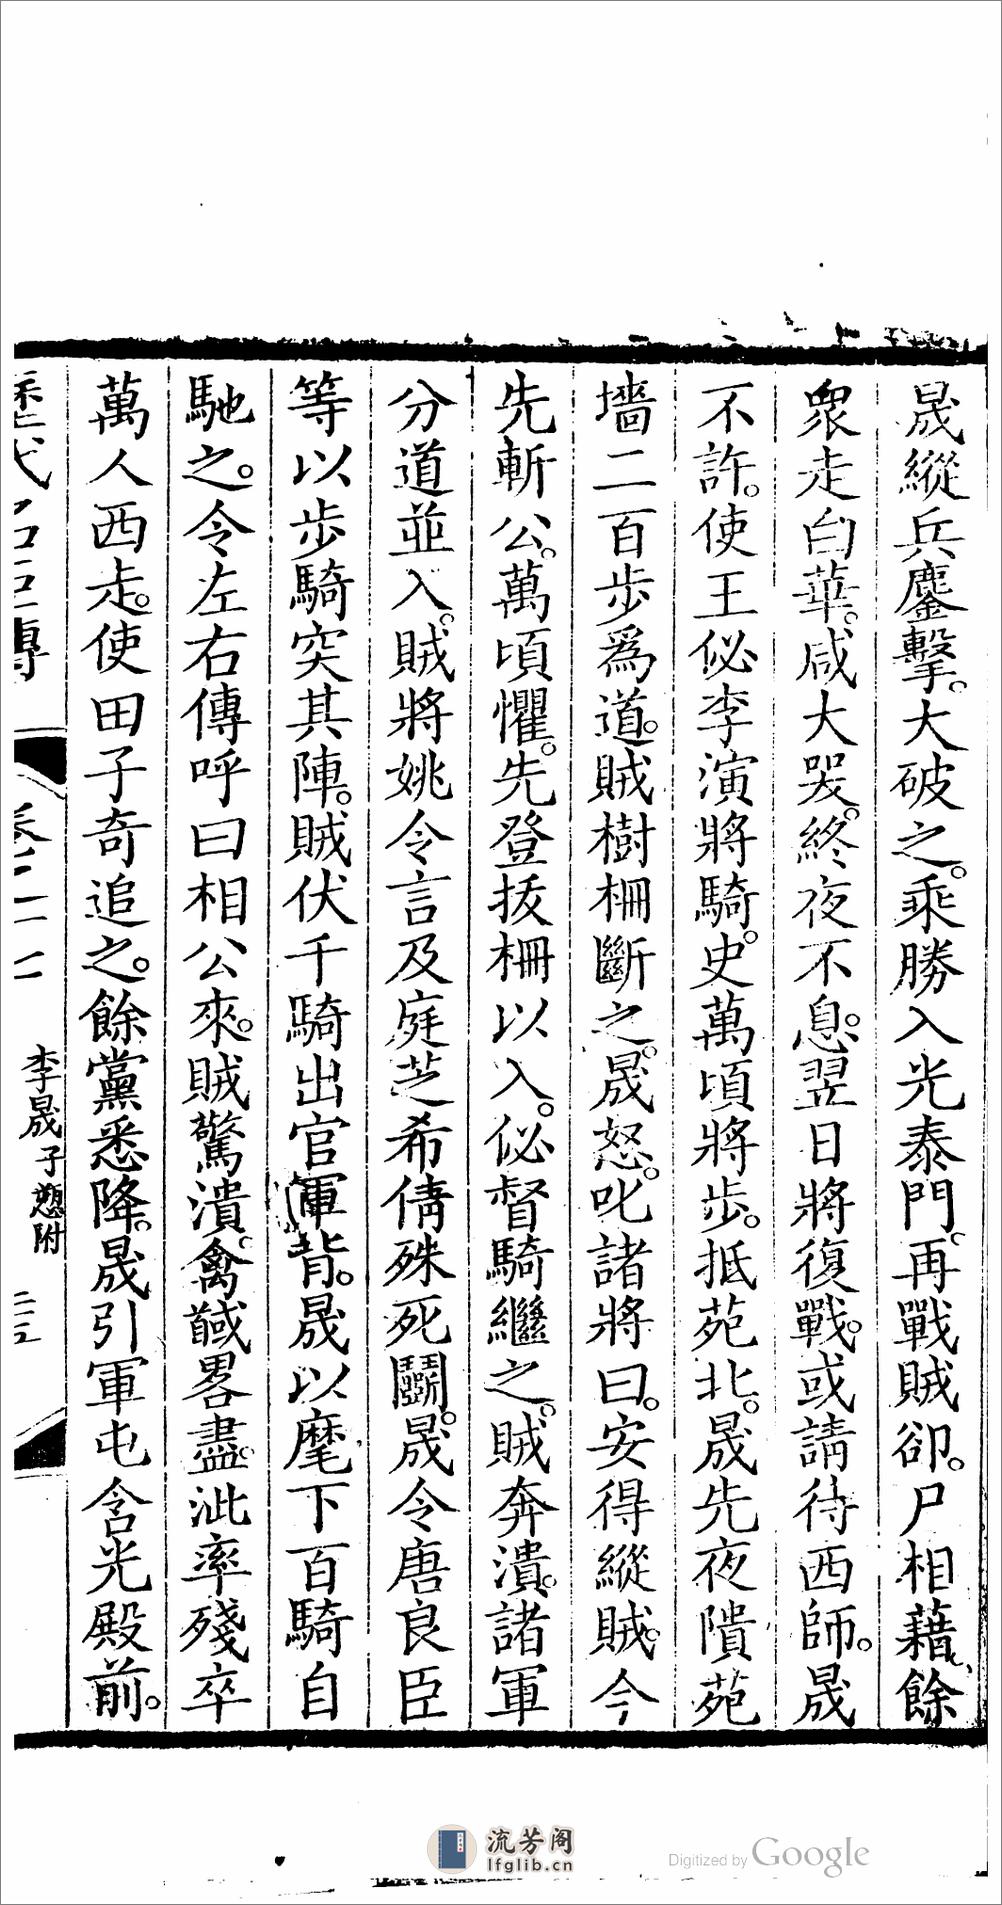 晟縱兵鏖擊。大破之。乘勝入光泰門。再戰賊卻。尸相藉、餘
衆走白華。咸大哭。終夜不息。翌日將復戰。或請待西師。晟
不許。使王佖李演將騎。史萬頃將步。抵苑北。晟先夜隤苑
墻二百步爲道。賊樹柵斷之。晟怒。叱諸將曰。安得縱賊。今
先斬公。萬頃懼。先登拔柵以入。佖督騎繼之。賊奔潰。諸軍
分道並入。賊將姚令言及庭芝希倩殊死鬬。晟令唐良臣
等以步騎突其陣。賊伏千騎出官軍背。晟以麾下百騎自
馳之。令左右傳呼曰相公來。賊驚潰。禽馘畧盡。泚率殘卒
萬人西走。使田子奇追之。餘黨悉降。晟引軍屯含光殿前。
歷代名臣傳 卷二十二 李晟 子愬附 二三
流芳阁
lfglib.cn
Digitized by Google